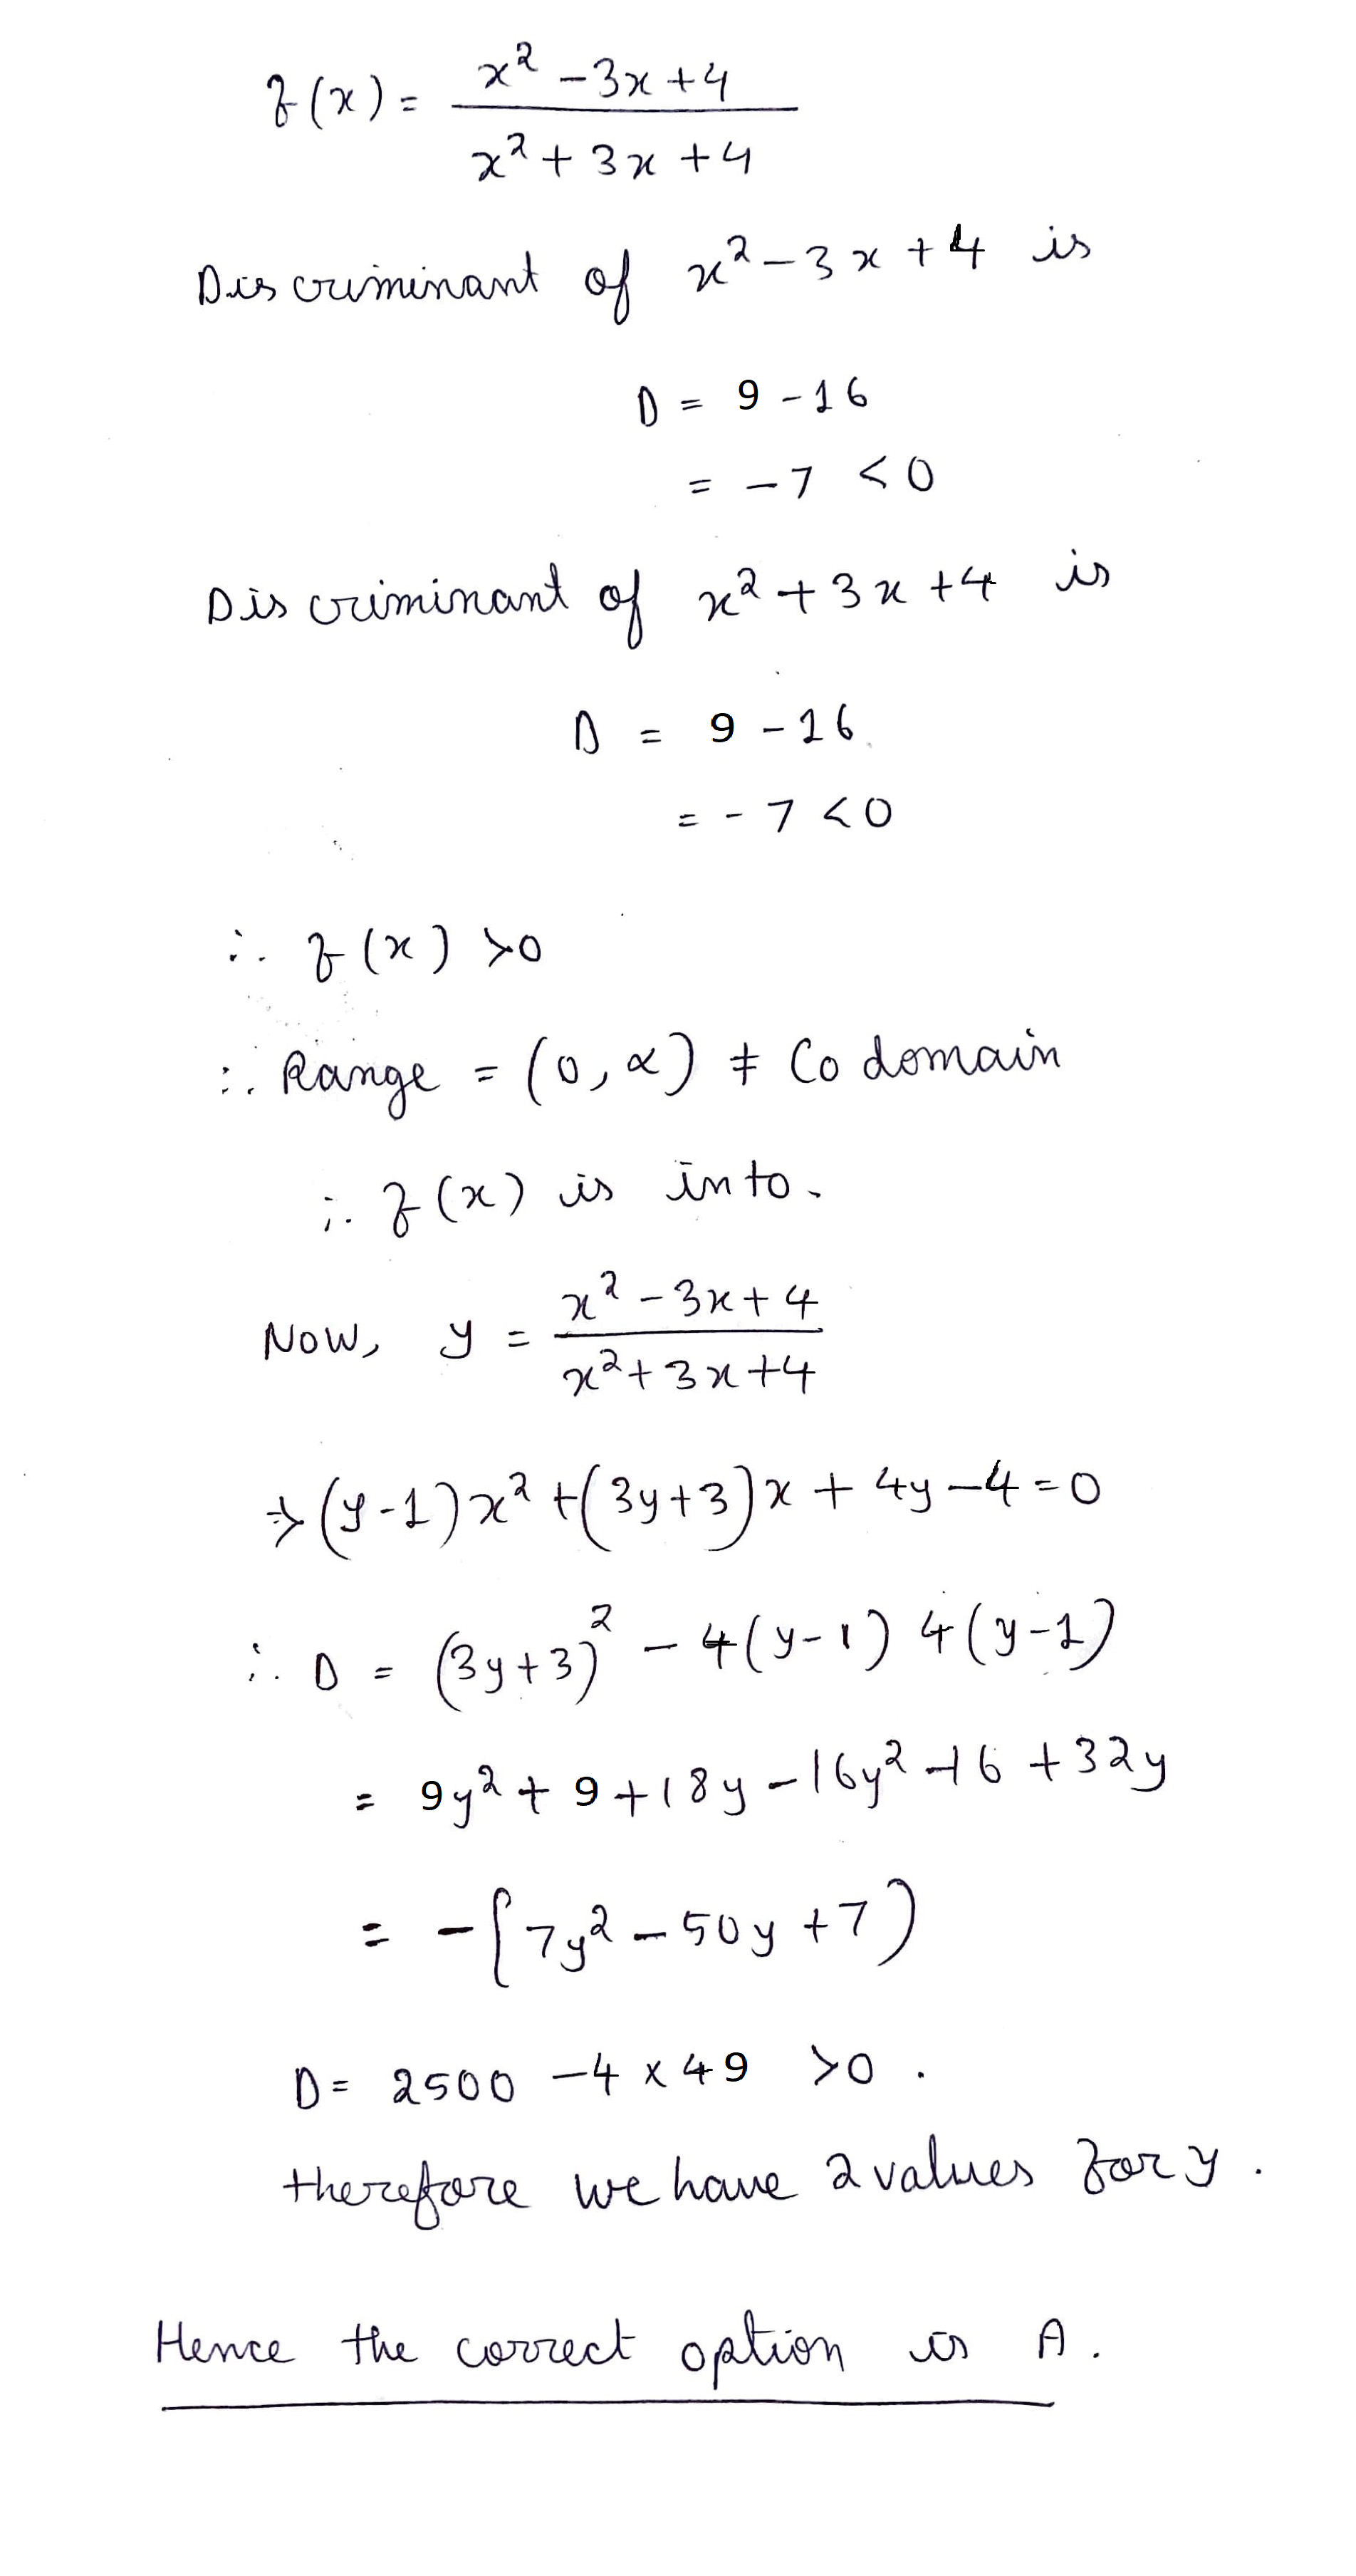 f(x) = (x² - 3x + 4) / (x² + 3x + 4)
Discriminant of x² - 3x + 4 is
D = 9 - 16
= -7 < 0
Discriminant of x² + 3x + 4 is
D = 9 - 16
= -7 < 0
∴ f(x) > 0
∴ Range = (0, ∝) ≠ Co domain
∴ f(x) is into.
Now, y = (x² - 3x + 4) / (x² + 3x + 4)
⇒ (y-1)x² + (3y+3)x + 4y - 4 = 0
∴ D = (3y+3)² - 4(y-1) 4(y-1)
= 9y² + 9 + 18y - 16y² - 16 + 32y
= -(7y² - 50y + 7)
D = 2500 - 4 x 49 > 0.
therefore we have 2 values for y.
Hence the correct option is A.